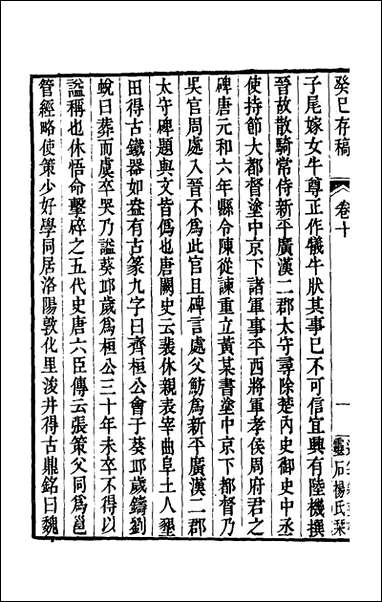 癸巳存稿 卷十 一 靈石楊氏栞
子尾嫁女牛尊正作犧牛狀其事已不可信宜興有陸機撰
晉故散騎常侍新平廣漢二郡太守尋除楚內史御史中丞
使持節大都督塗中京下諸軍事平西將軍孝侯周府君之
碑唐元和六年縣令陳從諫重立黃某書塗中京下都督乃
吳官周處入晉不為此官且碑言處父魴為新平廣漢二郡
太守碑題與文皆偽也唐闕史云裴休親表宰曲阜土人墾
田得古鐵器如盎有古篆九字曰齊桓公會于葵邱歲鑄劉
蛻曰葬而虞卒哭乃謚葵邱歲為桓公三十年未卒不得以
謚稱也休悟命擊碎之五代史唐六臣傳云張策父同為邕
管經略使策少好學同居洛陽敦化里浚井得古鼎銘曰魏